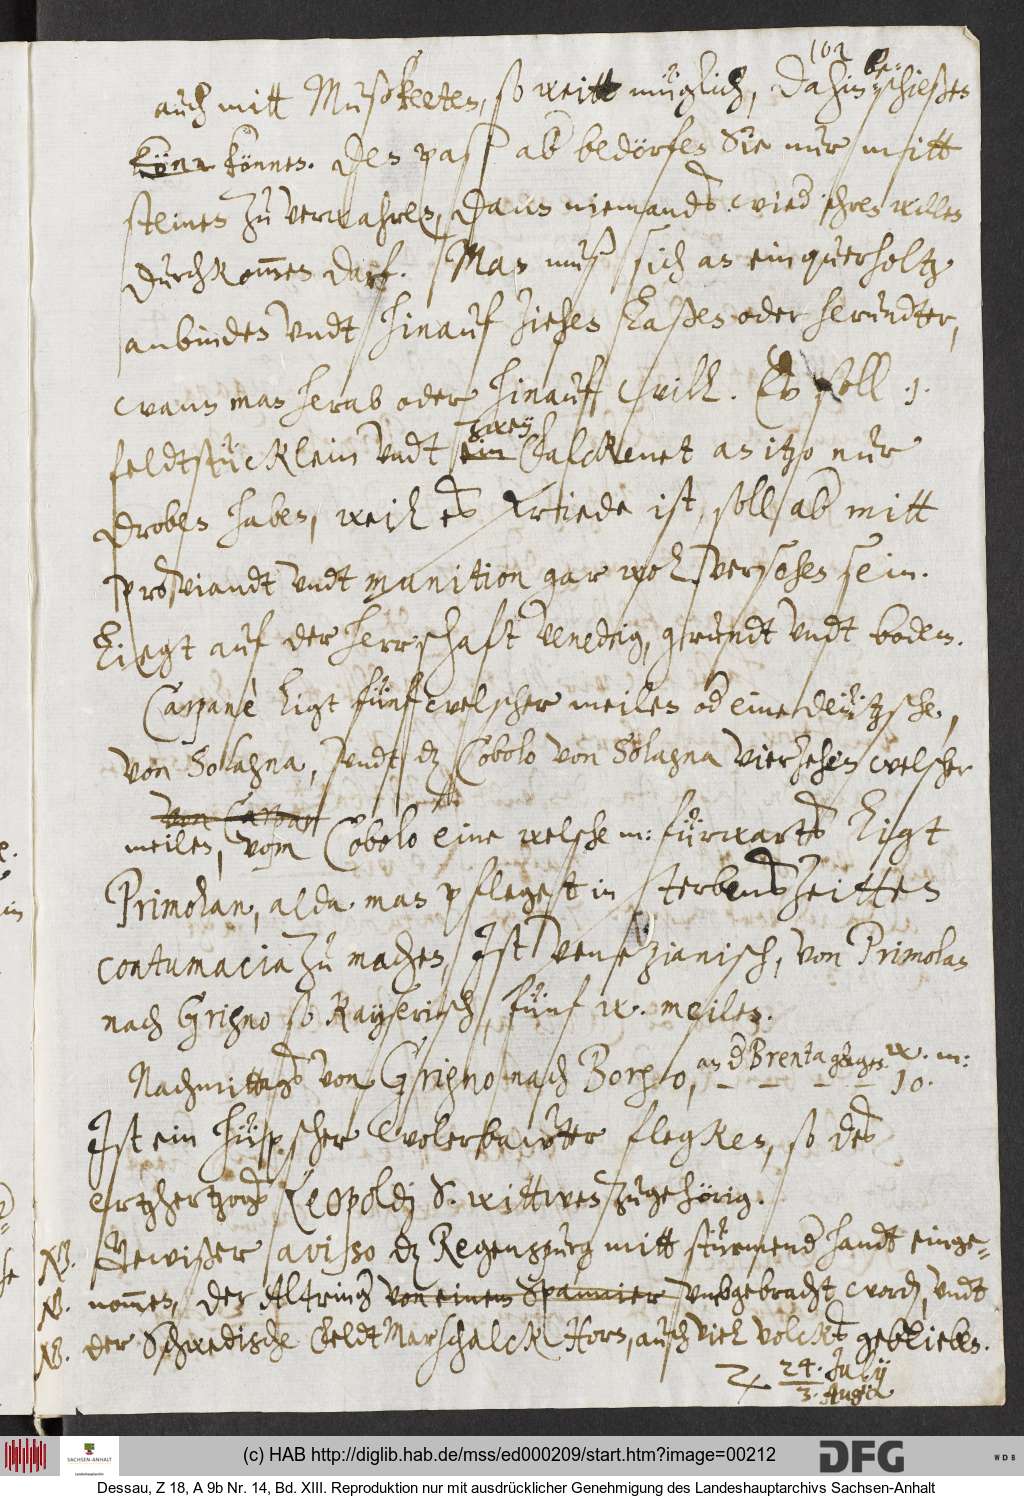 102
auch mitt Mußkeeten, so weitt müglich, dahin be¬schießen
könn können. Den paß ab bedörfen Sie nur mitt
steinen zu verwahren, dann niemands wied ihren willen
durchkommen darf. Man muß sich an ein querholtz
anbinden undt hinauf ziehen laßen oder herundter,
wann man herab oder hinauff will. Es soll .1.
feldtstücklein undt ein zwey Falckenet an itzo nur
droben haben, weil es Friede ist, soll ab mitt
proviandt undt munition gar wol versehen sein.
Liegt auf der herrschaft Venedig, grundt undt bodem.
Carpanè ligt fünf welscher meilen od eine deützsche,
von Solagna, undt dz Cobolo von Solagna vierzehen welscher
von Carpan
meilen, vom Cobolo eine welsche m: fürwarts ligt
Primolan, alda man pfleget in sterbenszeitten
contumacia zu machen, Ist venezianisch, von Primolan
nach Grigno so Kayserisch, fünf w. meilen.
Nachmittags von Grigno nach Borgo, an d Brenta gelegen w. m: 10.
Ist ein hüpscher wolerbawter flegken, so des
ertzhertzogs Leopoldj S. wittwen zugehörig.
NB. Gewißer aviso dz Regenspurg mitt stürmend handt einge=
NB. nommen, der Altringer von einem Spannier umbgebracht word, undt
NB. der Schwedische Feldt Marschalck Horn, auch viel volcks geblieben.
24. July
3. Augti
(c) HAB http://diglib.hab.de/mss/ed000209/start.htm?image=00212
SACHSEN-ANHALT
Landeshauptarchiv
DFG
WDB
Dessau, Z 18, A 9b Nr. 14, Bd. XIII. Reproduktion nur mit ausdrücklicher Genehmigung des Landeshauptarchivs Sachsen-Anhalt